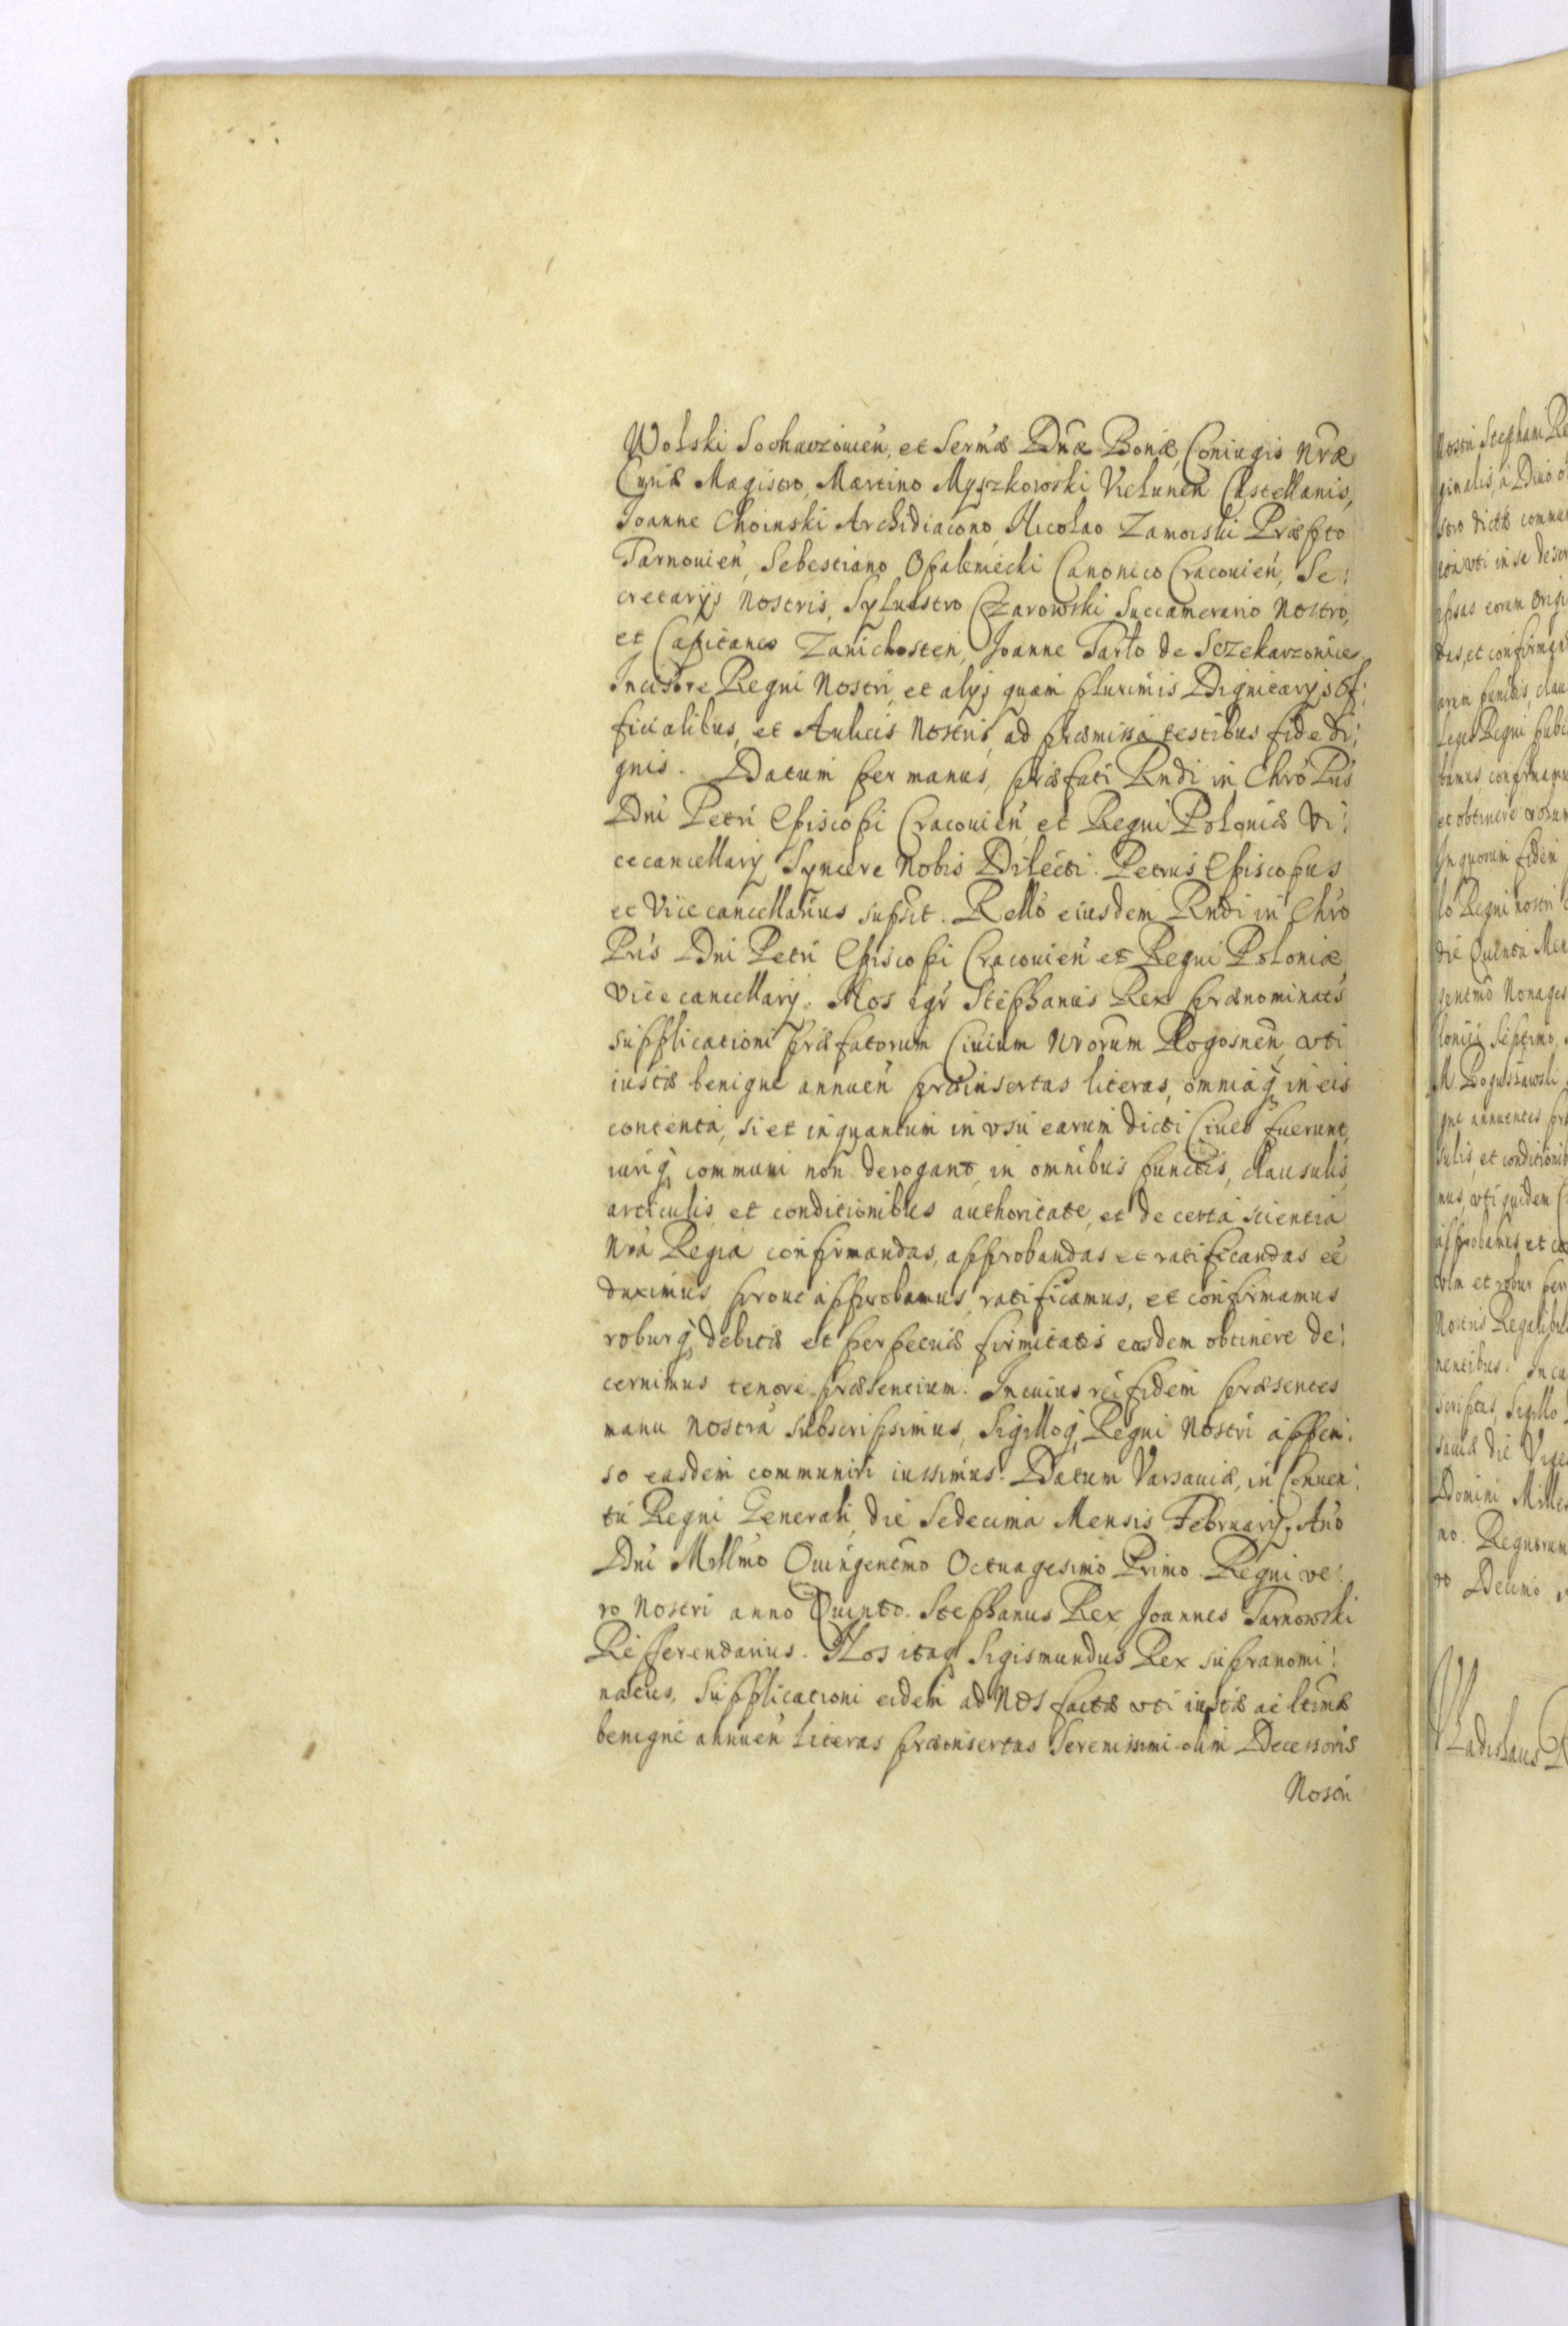 Wolski Sochaczouien̄, et Serm̄æ Dn̄æ Bonæ, Coniugis nr̄æ
Curiæ Magistro, Martino Myszkowski Vielunen̄ Castellanis,
Joanne Choinski Archidiacono, Nicolao Zamoiski Præpto
Tarnouien̄, Sebestiano Opaleniecki Canonico Cracouien̄, Se:
cretarijs Nostris, Syluestro Czarowski Succamerario Nostro,
et Capitaneo Zauichosten, Joanne Tarło de Sczekarzouice,
Incisore Regni Nostri, et alijs quam plurimis Dignitarijs Of:
ficialibus, et Aulicis Nostris, ad præmissa testibus fide di:
gnis. Datum per manus, præfati Rndi in Chro Pris
Dni Petri Episcopi Cracouien̄, et Regni Poloniæ Vi:
cecancellarij Syncere Nobis Dilecti. Petrus Episcopus
et Vicecancellarius supsit. Rello eiusdem Rndi in Chro
Pris Dni Petri Episcopi Cracouien̄ et Regni Poloniæ
Vicecancellarij. Nos igr Stephanus Rex prænominats
supplicationi præfatorum Ciuium Nrorum Rogosnen̄, vti
iustæ benigne annuen̄ præinsertas literas, omniaq, in eis
contenta, si et inquantum in vsu earum dicti Ciues fuerunt,
iuriq, communi non derogant, in omnibus punctis, clausulis,
articulis, et conditionibus authoritate, et de certa scientia
Nra Regia confirmandas, approbandas et ratificandas ee
duximus, prout approbamus, ratificamus, et confirmamus
roburq, debitæ et perpetuæ firmitatis easdem obtinere de:
cernimus tenore præsentium. In cuius rei fidem præsentes
manu nostra subscripsimus, Sigilloq, Regni Nostri appen:
so easdem communiri iussimus. Datum Varsauiæ, in Conuen:
tu Regni Generali, die Sedecima Mensis February, Ano
Dni Mıllmo Quingentmo Octuagesimo Primo. Regni ve:
ro Nostri anno Quinto. Stephanus Rex, Joannes Tarnowski
Refferendarius. Nos itaq, Sigismundus Rex supranomi:
natus, Supplicationi eidem ad Nos factæ vti iustæ ac ltimæ
benigne annuen̄ literas præinsertas Serenissimi olim Decessoris
Nostri